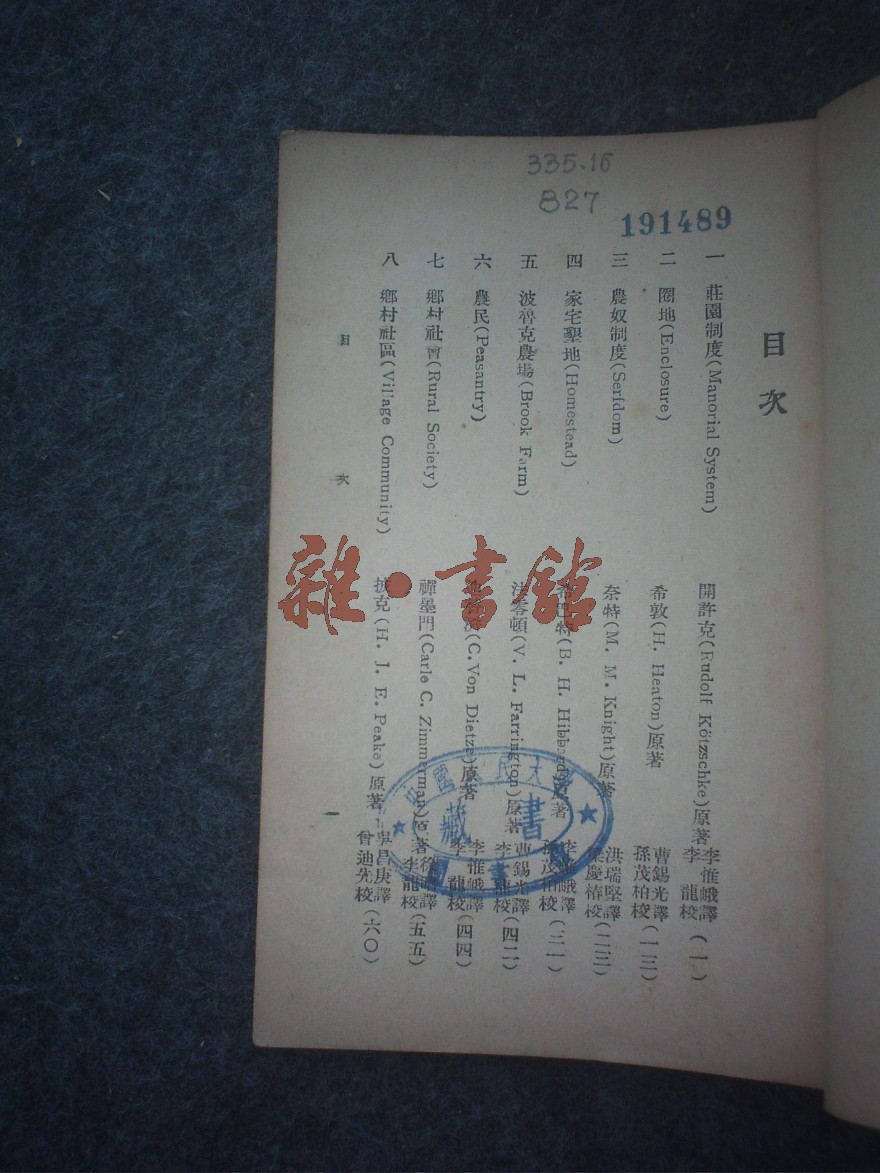 335.16
827
191489
目次
一 莊園制度(Manorial System) 開許克(Rudolf Kötzschke)原著 李惟峨譯 李龍校 (一)
二 圈地(Enclosure) 希敦(H. Heaton)原著 曹錫光譯 孫茂柏校
三 農奴制度(Serfdom) 奈特(M. M. Knight)原著 洪瑞堅譯 慶椿校
四 家宅墾地(Homestead) 特(B. H. 原著 孫茂柏校
五 波魯克農場(Brook Farm) 法零頓(V. L. Farrington)原著 曹錫光譯
六 農民(Peasantry) (C. Von Dietze)原著 李惟峨譯 李龍校 (四四)
七 鄉村社會(Rural Society) 禪墨門(Carle C. Zimmerman)原著 李龍校 (五五)
八 鄉村社區(Village Community) 披克(H. J. E. Peake)原著 吳昌庚譯 曾迪先校 (六〇)
目次
一
雜·書館
藏書